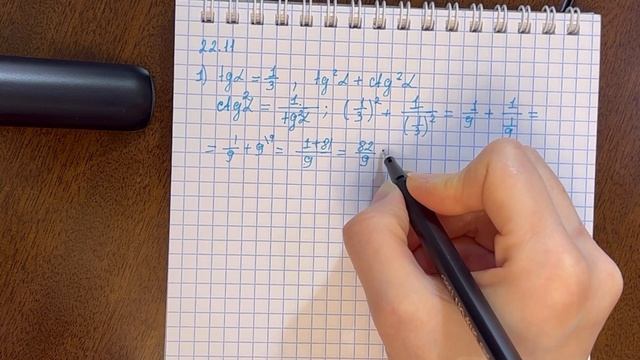 22.11
1) tgα = 1/3 , tg²α + ctg²α
ctg²α = 1/tg²α ; (1/3)² + 1/(1/3)² = 1/9 + 1/(1/9) =
= 1/9 + 9\9 = (1+81)/9 = 82/9